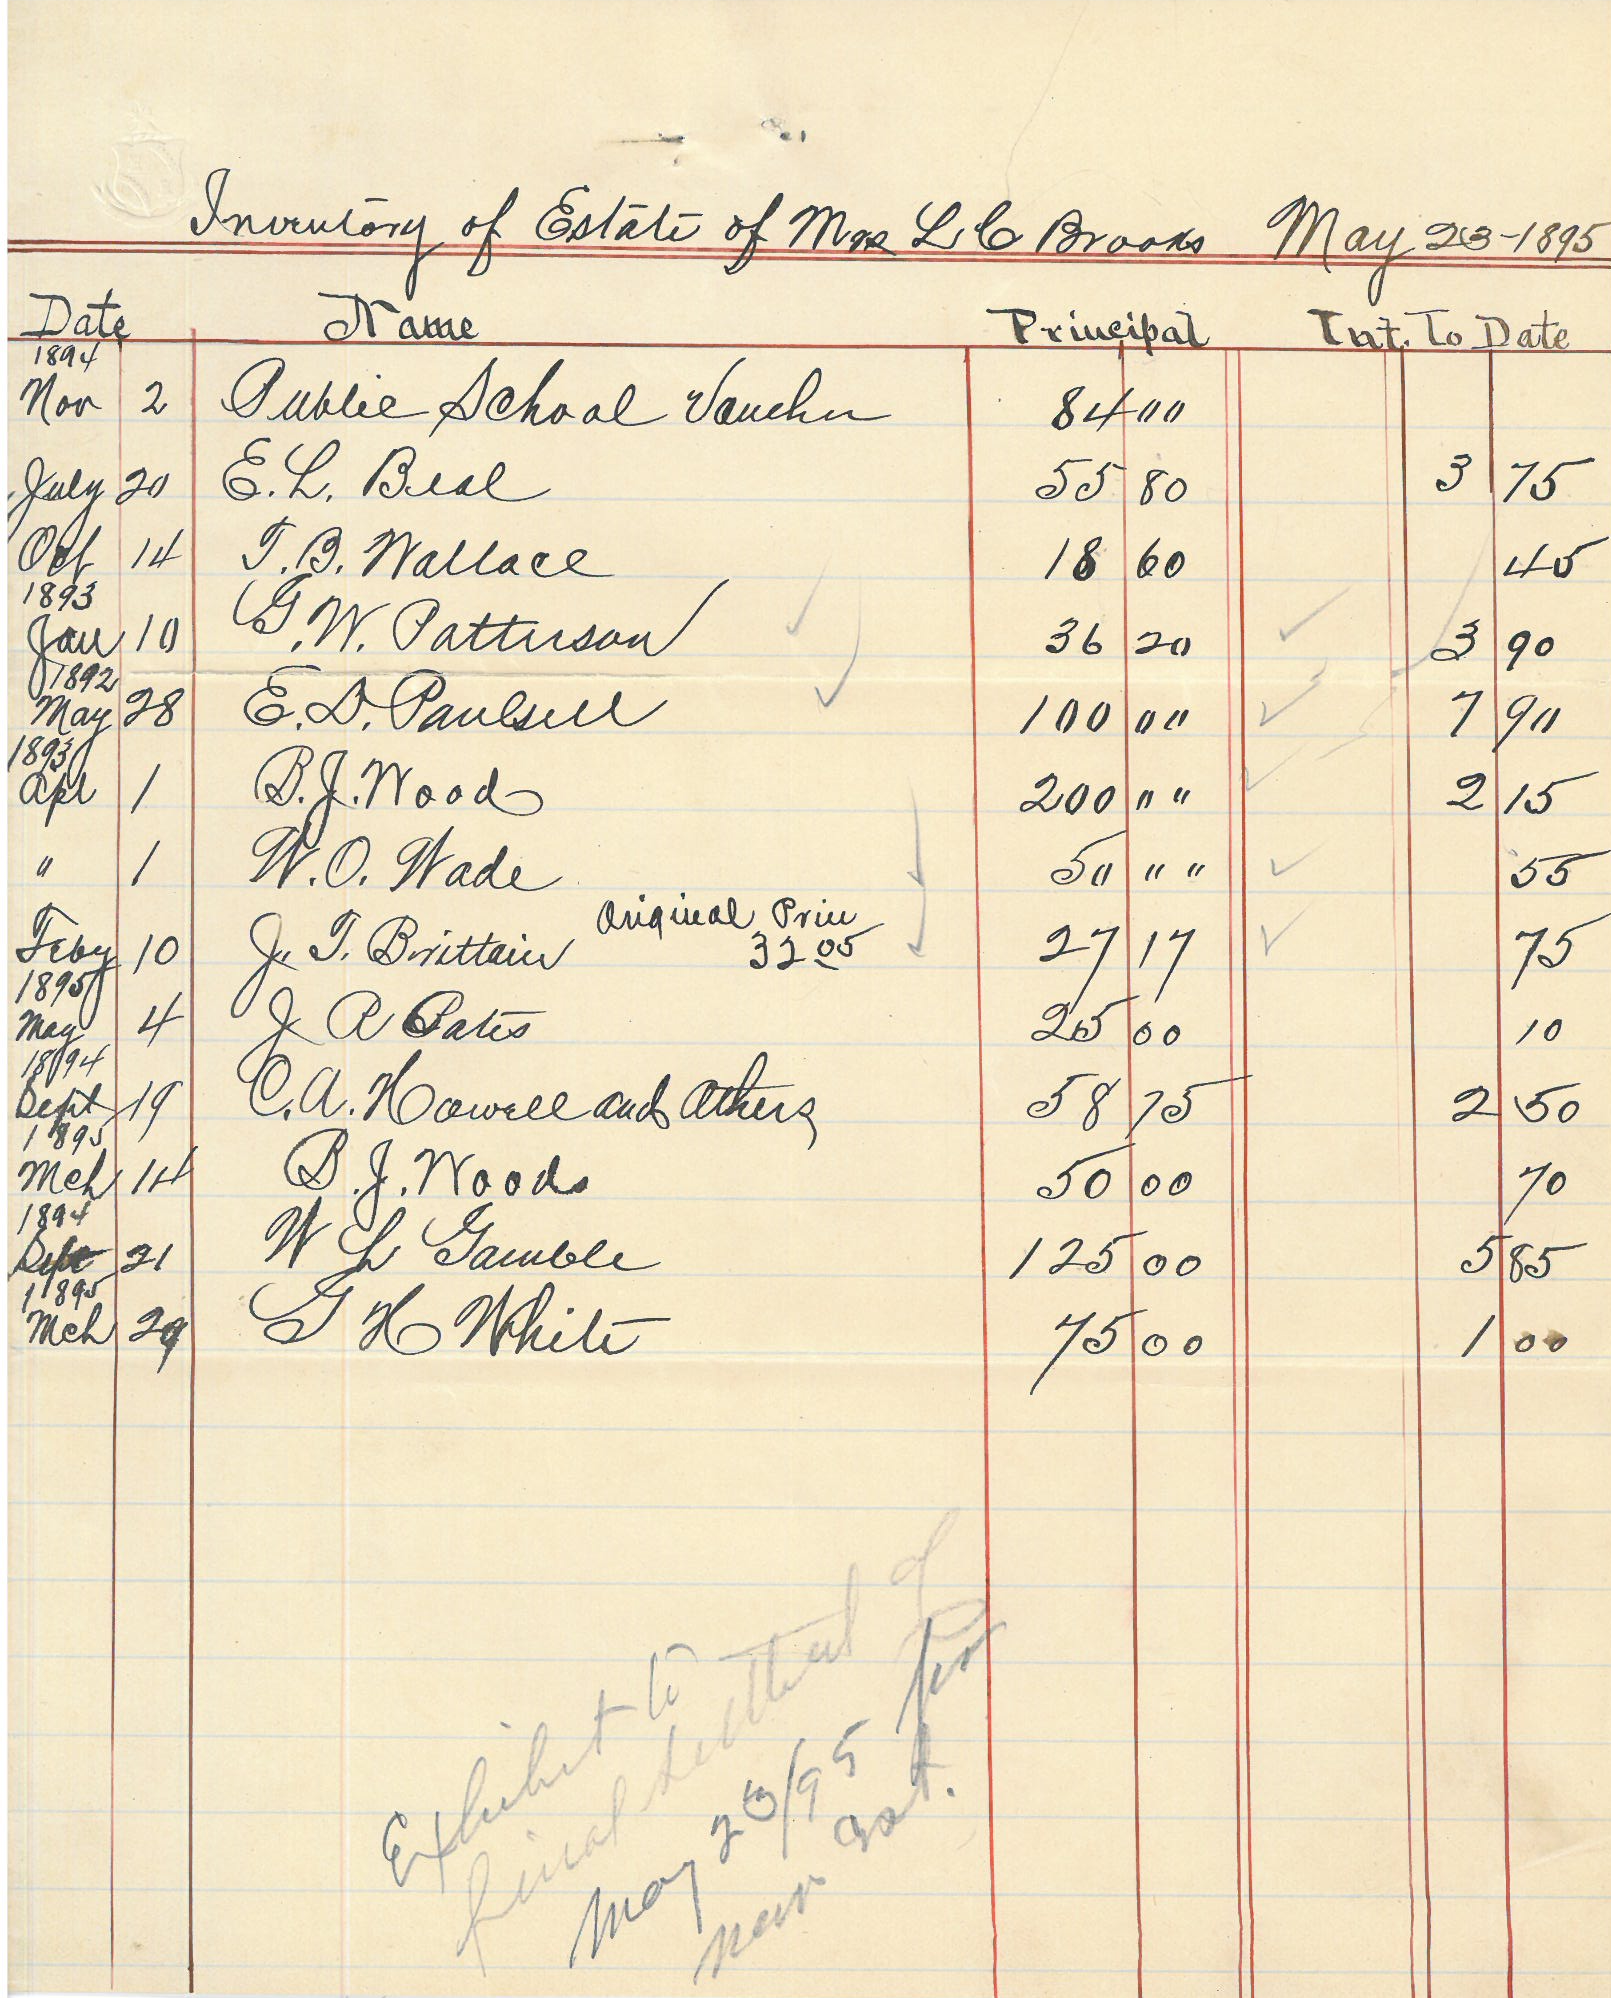 Inventory of Estate of Mrs L C Brooks May 23-1895
Date Name Principal Int. To Date
1894
Nov 2 Public School Vouchr 84 00
July 20 E. L. Beal 55 80 3 75
Oct 14 T. B. Wallace 18 60 45
1893
Jan 10 G. W. Patterson 36 20 3 90
1892
May 28 E. D. Paulsell 100 00 7 90
1893
Apl 1 B. J. Wood 200 " " 2 15
" 1 W. O. Wade 50 " " 55
Original Prin
Feby 10 J. T. Brittain 32 05 27 17 75
1895
May 4 J R Pates 25 00 10
1894
Sept 19 C. A. Howell and others 58 75 2 50
1895
Mch 14 B. J. Woods 50 00 70
1894
Sept 21 W L Gamble 125 00 5 85
1895
Mch 29 G H White 75 00 1 00
Exhibit to
final settlemt of
May 23/95 for
new